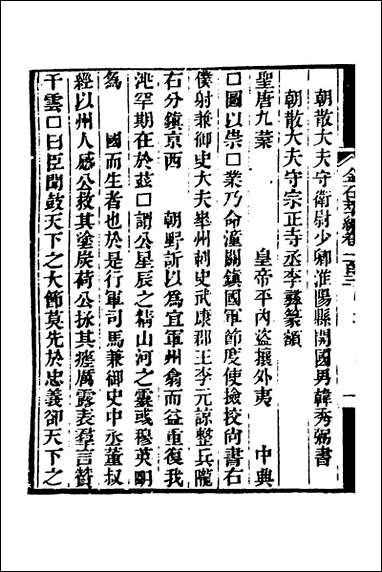 朝散大夫守衛尉少卿淮陽縣開國男韓秀弼書
朝散大夫守宗正寺丞李彝篆額
聖唐九葉 皇帝平內盜攘外夷 中典
□國以崇□業乃命潼關鎮國軍節度使撿挍尚書右
僕射兼御史大夫華州刺史武康郡王李元諒整兵隴
右分鎮京西 朝野訢以為宜軍州翕而益重復我
洮罕期在於玆□謂公星辰之精山河之靈或穆英明
為 國而生者也於是行軍司馬兼御史中丞董叔
經以州人感公救其塗炭荷公拯其瘥厲露表羣言贊
干雲□曰臣聞鼓天下之大節莫先於忠義卻天下之
金石萃編卷一百三
一